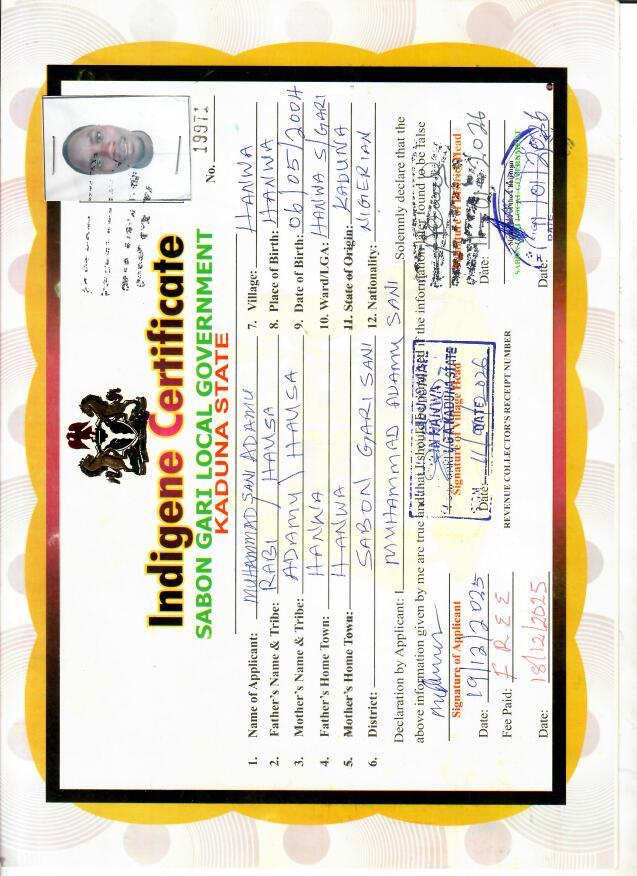 Indigene Certificate
SABON GARI LOCAL GOVERNMENT
KADUNA STATE
No. 19971
1. Name of Applicant: MUHAMMAD SANI ADAMU 7. Village: HANWA
2. Father's Name & Tribe: RABI / HAUSA 8. Place of Birth: HANWA
3. Mother's Name & Tribe: ADAMU \ HAUSA 9. Date of Birth: 06/05/2004
4. Father's Home Town: HANWA 10. Ward/LGA: HANWA S/GARI
5. Mother's Home Town: HANWA 11. State of Origin: KADUNA
6. District: SABON GARI SANI 12. Nationality: NIGERIAN
Declaration by Applicant: I MUHAMMAD ADAMU SANI Solemnly declare that the
above information given by me are true and that I should be if the information found to be false
Signature of Applicant Signature of Village Head Signature of District Head
Date: 19/12/2025 Date: 11/ DATE 2026 Date: 2026
Fee Paid: FREE REVENUE COLLECTOR'S RECEIPT NUMBER
SABON GARI LOCAL GOVERNMENT
Date: 18/12/2025 Date:
DATE